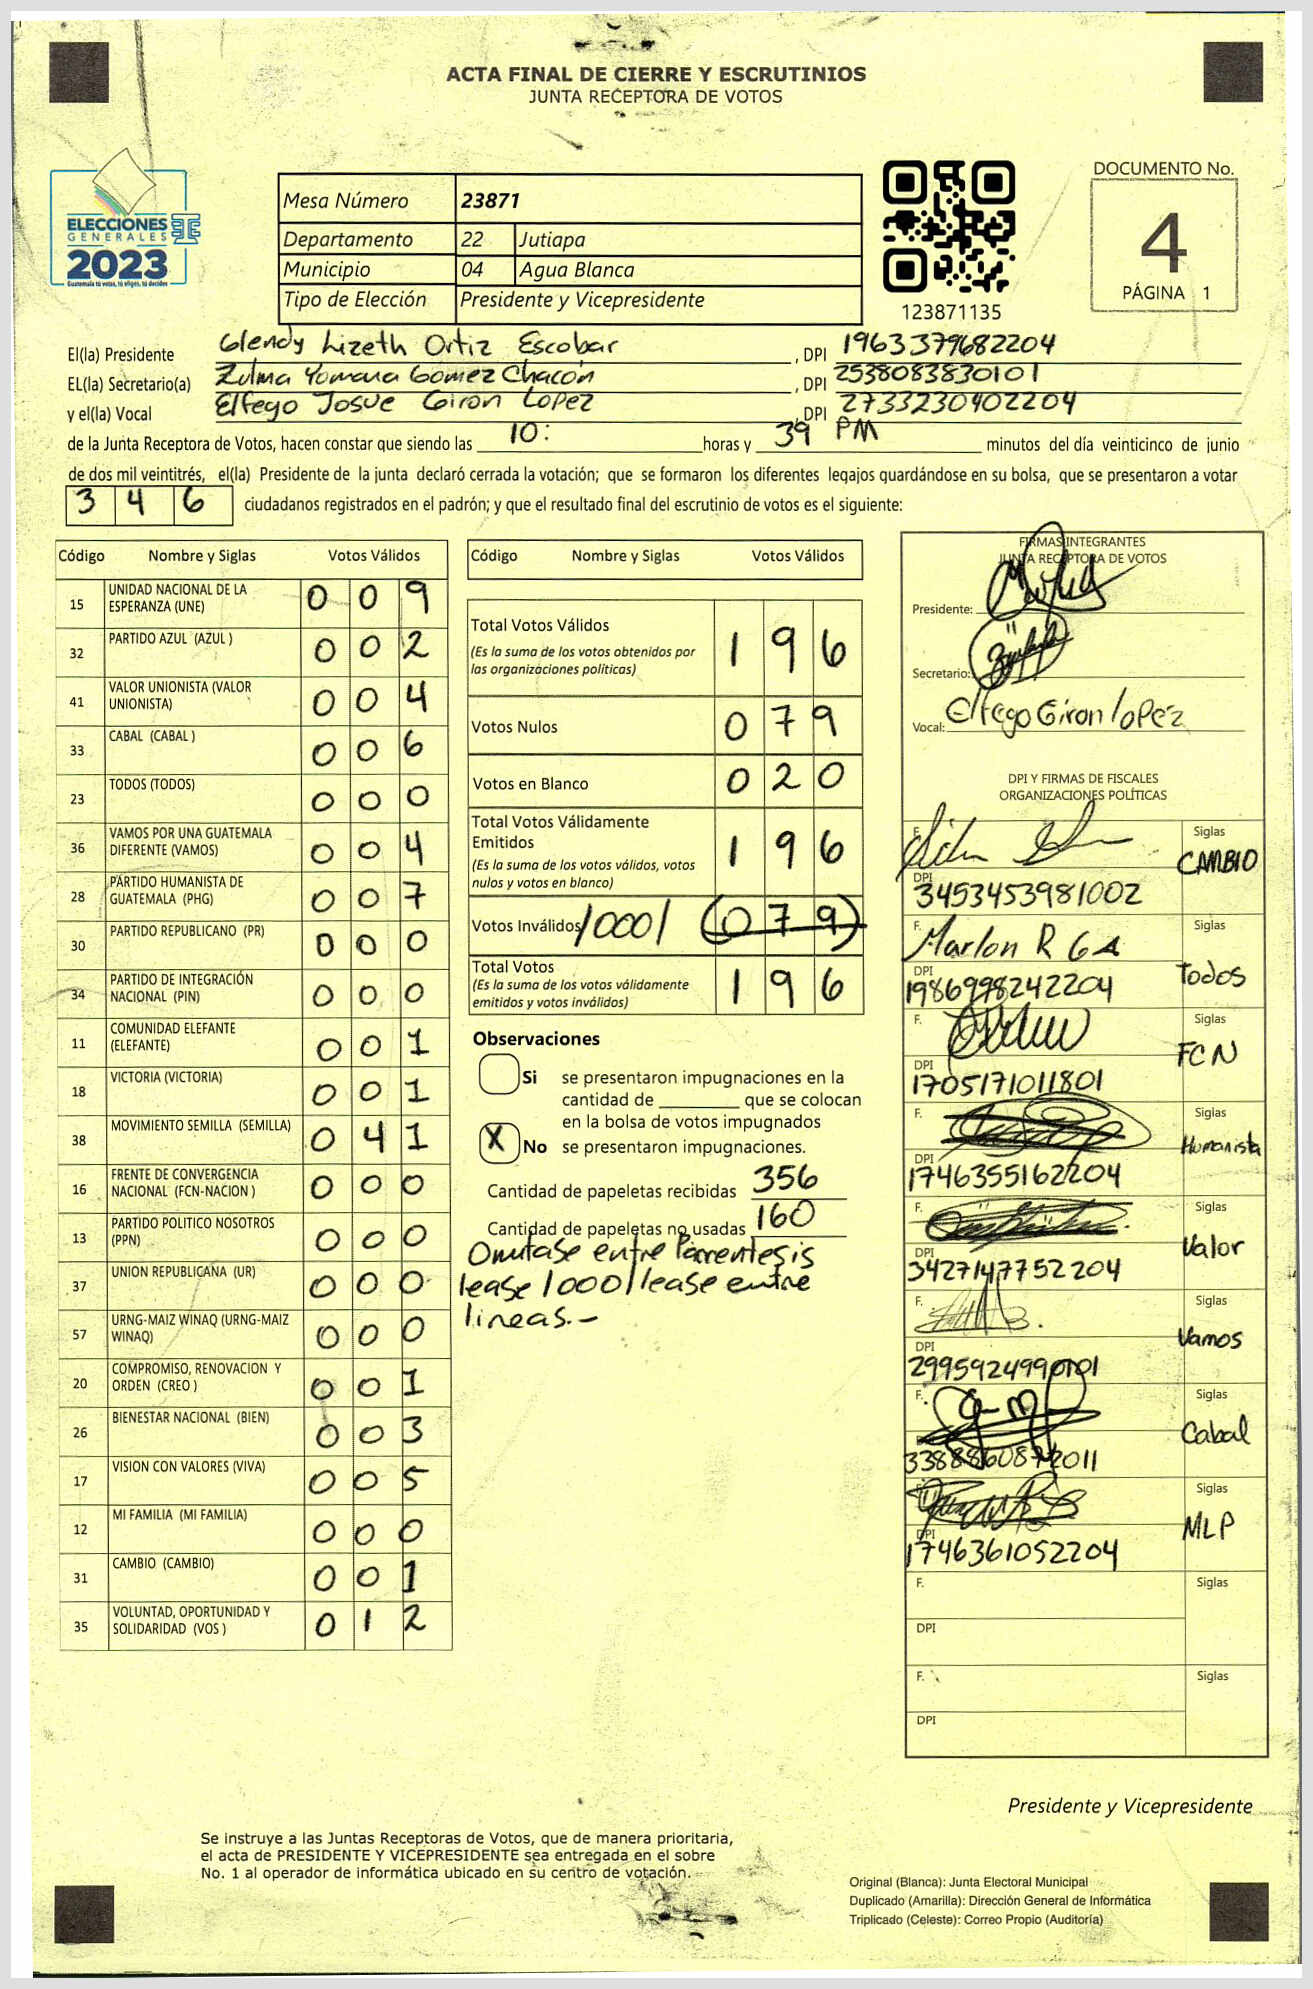 ACTA FINAL DE CIERRE Y ESCRUTINIOS
JUNTA RECEPTORA DE VOTOS
ELECCIONES
GENERALES
2023
Guatemala tú votas, tú eliges, tú decides
Mesa Número 23871
Departamento 22 Jutiapa
Municipio 04 Agua Blanca
Tipo de Elección Presidente y Vicepresidente
123871135
DOCUMENTO No.
4
PÁGINA 1
El(la) Presidente Glendy Lizeth Ortiz Escobar , DPI 1963379682204
EL(la) Secretario(a) Zulma Yomara Gomez Chacón , DPI 2538083830101
y el(la) Vocal Elfego Josue Giron Lopez , DPI 2733230402204
de la Junta Receptora de Votos, hacen constar que siendo las 10: horas y 39 PM minutos del día veinticinco de junio
de dos mil veintitrés, el(la) Presidente de la junta declaró cerrada la votación; que se formaron los diferentes legajos quardándose en su bolsa, que se presentaron a votar
3 4 6 ciudadanos registrados en el padrón; y que el resultado final del escrutinio de votos es el siguiente:
Código Nombre y Siglas Votos Válidos
15 UNIDAD NACIONAL DE LA ESPERANZA (UNE) 0 0 9
32 PARTIDO AZUL (AZUL ) 0 0 2
41 VALOR UNIONISTA (VALOR UNIONISTA) 0 0 4
33 CABAL (CABAL ) 0 0 6
23 TODOS (TODOS) 0 0 0
36 VAMOS POR UNA GUATEMALA DIFERENTE (VAMOS) 0 0 4
28 PARTIDO HUMANISTA DE GUATEMALA (PHG) 0 0 7
30 PARTIDO REPUBLICANO (PR) 0 0 0
34 PARTIDO DE INTEGRACIÓN NACIONAL (PIN) 0 0 0
11 COMUNIDAD ELEFANTE (ELEFANTE) 0 0 1
18 VICTORIA (VICTORIA) 0 0 1
38 MOVIMIENTO SEMILLA (SEMILLA) 0 4 1
16 FRENTE DE CONVERGENCIA NACIONAL (FCN-NACION ) 0 0 0
13 PARTIDO POLITICO NOSOTROS (PPN) 0 0 0
37 UNION REPUBLICANA (UR) 0 0 0
57 URNG-MAIZ WINAQ (URNG-MAIZ WINAQ) 0 0 0
20 COMPROMISO, RENOVACION Y ORDEN (CREO ) 0 0 1
26 BIENESTAR NACIONAL (BIEN) 0 0 3
17 VISION CON VALORES (VIVA) 0 0 5
12 MI FAMILIA (MI FAMILIA) 0 0 0
31 CAMBIO (CAMBIO) 0 0 1
35 VOLUNTAD, OPORTUNIDAD Y SOLIDARIDAD (VOS ) 0 1 2
Código Nombre y Siglas Votos Válidos
Total Votos Válidos 1 9 6
(Es la suma de los votos obtenidos por
las organizaciones políticas)
Votos Nulos 0 7 9
Votos en Blanco 0 2 0
Total Votos Válidamente
Emitidos 1 9 6
(Es la suma de los votos válidos, votos
nulos y votos en blanco)
Votos Inválidos /000/ (0 7 9)
Total Votos 1 9 6
(Es la suma de los votos válidamente
emitidos y votos inválidos)
Observaciones
Si se presentaron impugnaciones en la
cantidad de ________ que se colocan
en la bolsa de votos impugnados
X No se presentaron impugnaciones.
Cantidad de papeletas recibidas 356
Cantidad de papeletas no usadas 160
Omitase entre Parentesis
lease /000/ lease entre
lineas.-
FIRMAS INTEGRANTES
JUNTA RECEPTORA DE VOTOS
Presidente:
Secretario:
Vocal: Elfego Giron lopez
DPI Y FIRMAS DE FISCALES
ORGANIZACIONES POLÍTICAS
F. Siglas CAMBIO
DPI 3453453981002
F. Marlon R G A Siglas Todos
DPI 1986998242204
F. Siglas FCN
DPI 1705171011801
F. Siglas Humanista
DPI 1746355162204
F. Siglas Valor
DPI 3427147752204
F. Siglas Vamos
DPI
F. Siglas Cabal
F. Siglas MLP
DPI 1746361052204
F. Siglas
DPI
F. Siglas
DPI
Presidente y Vicepresidente
Se instruye a las Juntas Receptoras de Votos, que de manera prioritaria,
el acta de PRESIDENTE Y VICEPRESIDENTE sea entregada en el sobre
No. 1 al operador de informática ubicado en su centro de votación.
Original (Blanca): Junta Electoral Municipal
Duplicado (Amarilla): Dirección General de Informática
Triplicado (Celeste): Correo Propio (Auditoría)